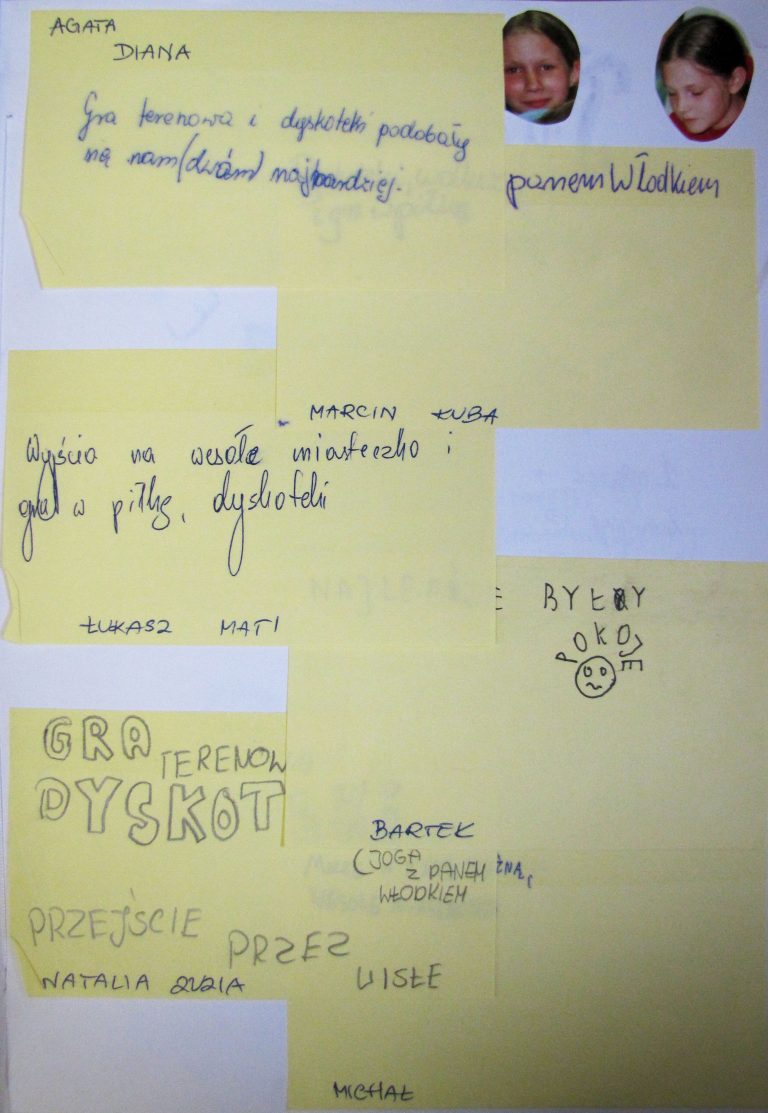 AGATA
DIANA
Gra terenowa i dyskoteki podobały
się nam (dwóm) najbardziej.
panem Włodkiem
MARCIN ŁUBA
Wyjścia na wesołe miasteczko i
gra w piłkę, dyskoteki
ŁUKASZ MATI
E BYŁY
POKOJE
GRA TERENOW
DYSKOT
BARTEK
(JOGA
Z PANEM
WŁODKIEM
PRZEJŚCIE
PRZEZ
WISŁE
NATALIA ZUZIA
MICHAŁ